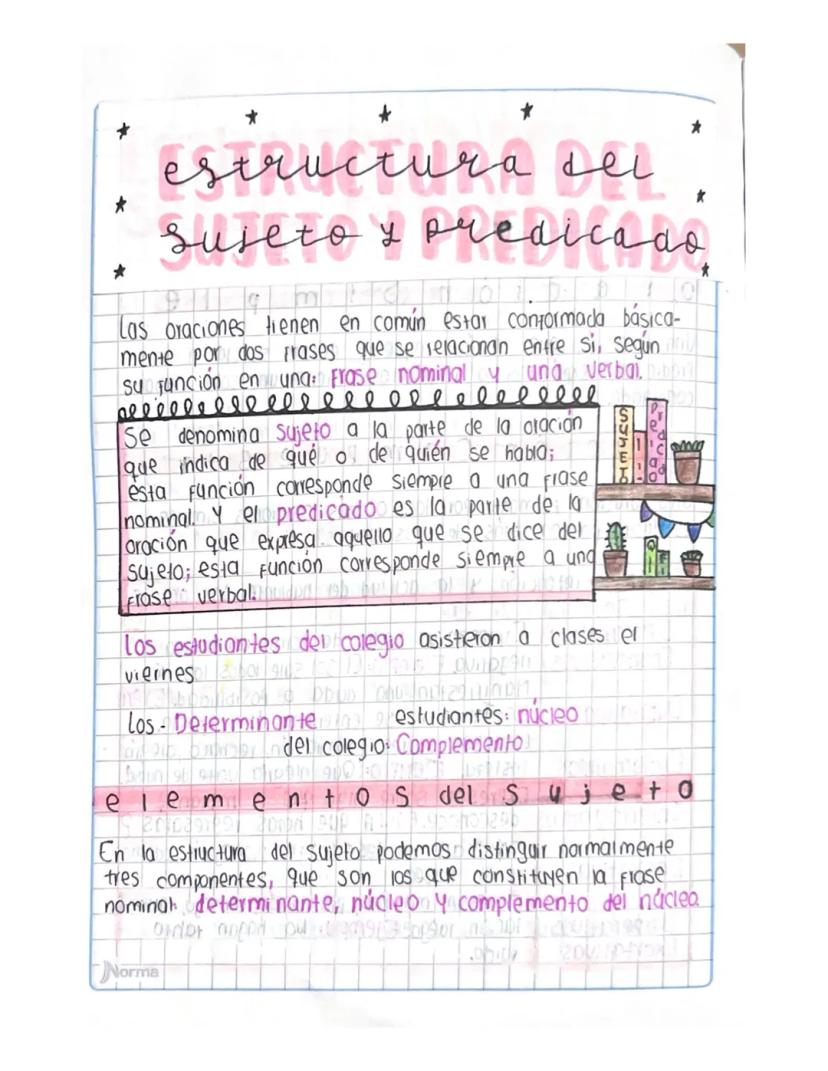 estructura del
sujeto y predicado
Las oraciones tienen en común estar conformada básica-
mente por dos frases que se relacionan entre si, según
su función en una: frase nominal y una verbal.
Se denomina sujeto a la parte de la oración
que indica de qué o de quién se habla;
esta función corresponde siempre a una frase
nominal. Y el predicado es la parte de la
oración que expresa aquello que se dice del
sujeto; esta función corresponde siempre a una
frase verbal.
SUJETO
Predicado
Los estudiantes del colegio asistieron a clases el
viernes
Los - Determinante estudiantes: núcleo
del colegio: Complemento
elementos del sujeto
En la estructura del sujeto podemos distinguir normalmente
tres componentes, que son los que constituyen la frase
nominal: determinante, núcleo y complemento del núcleo.
Norma